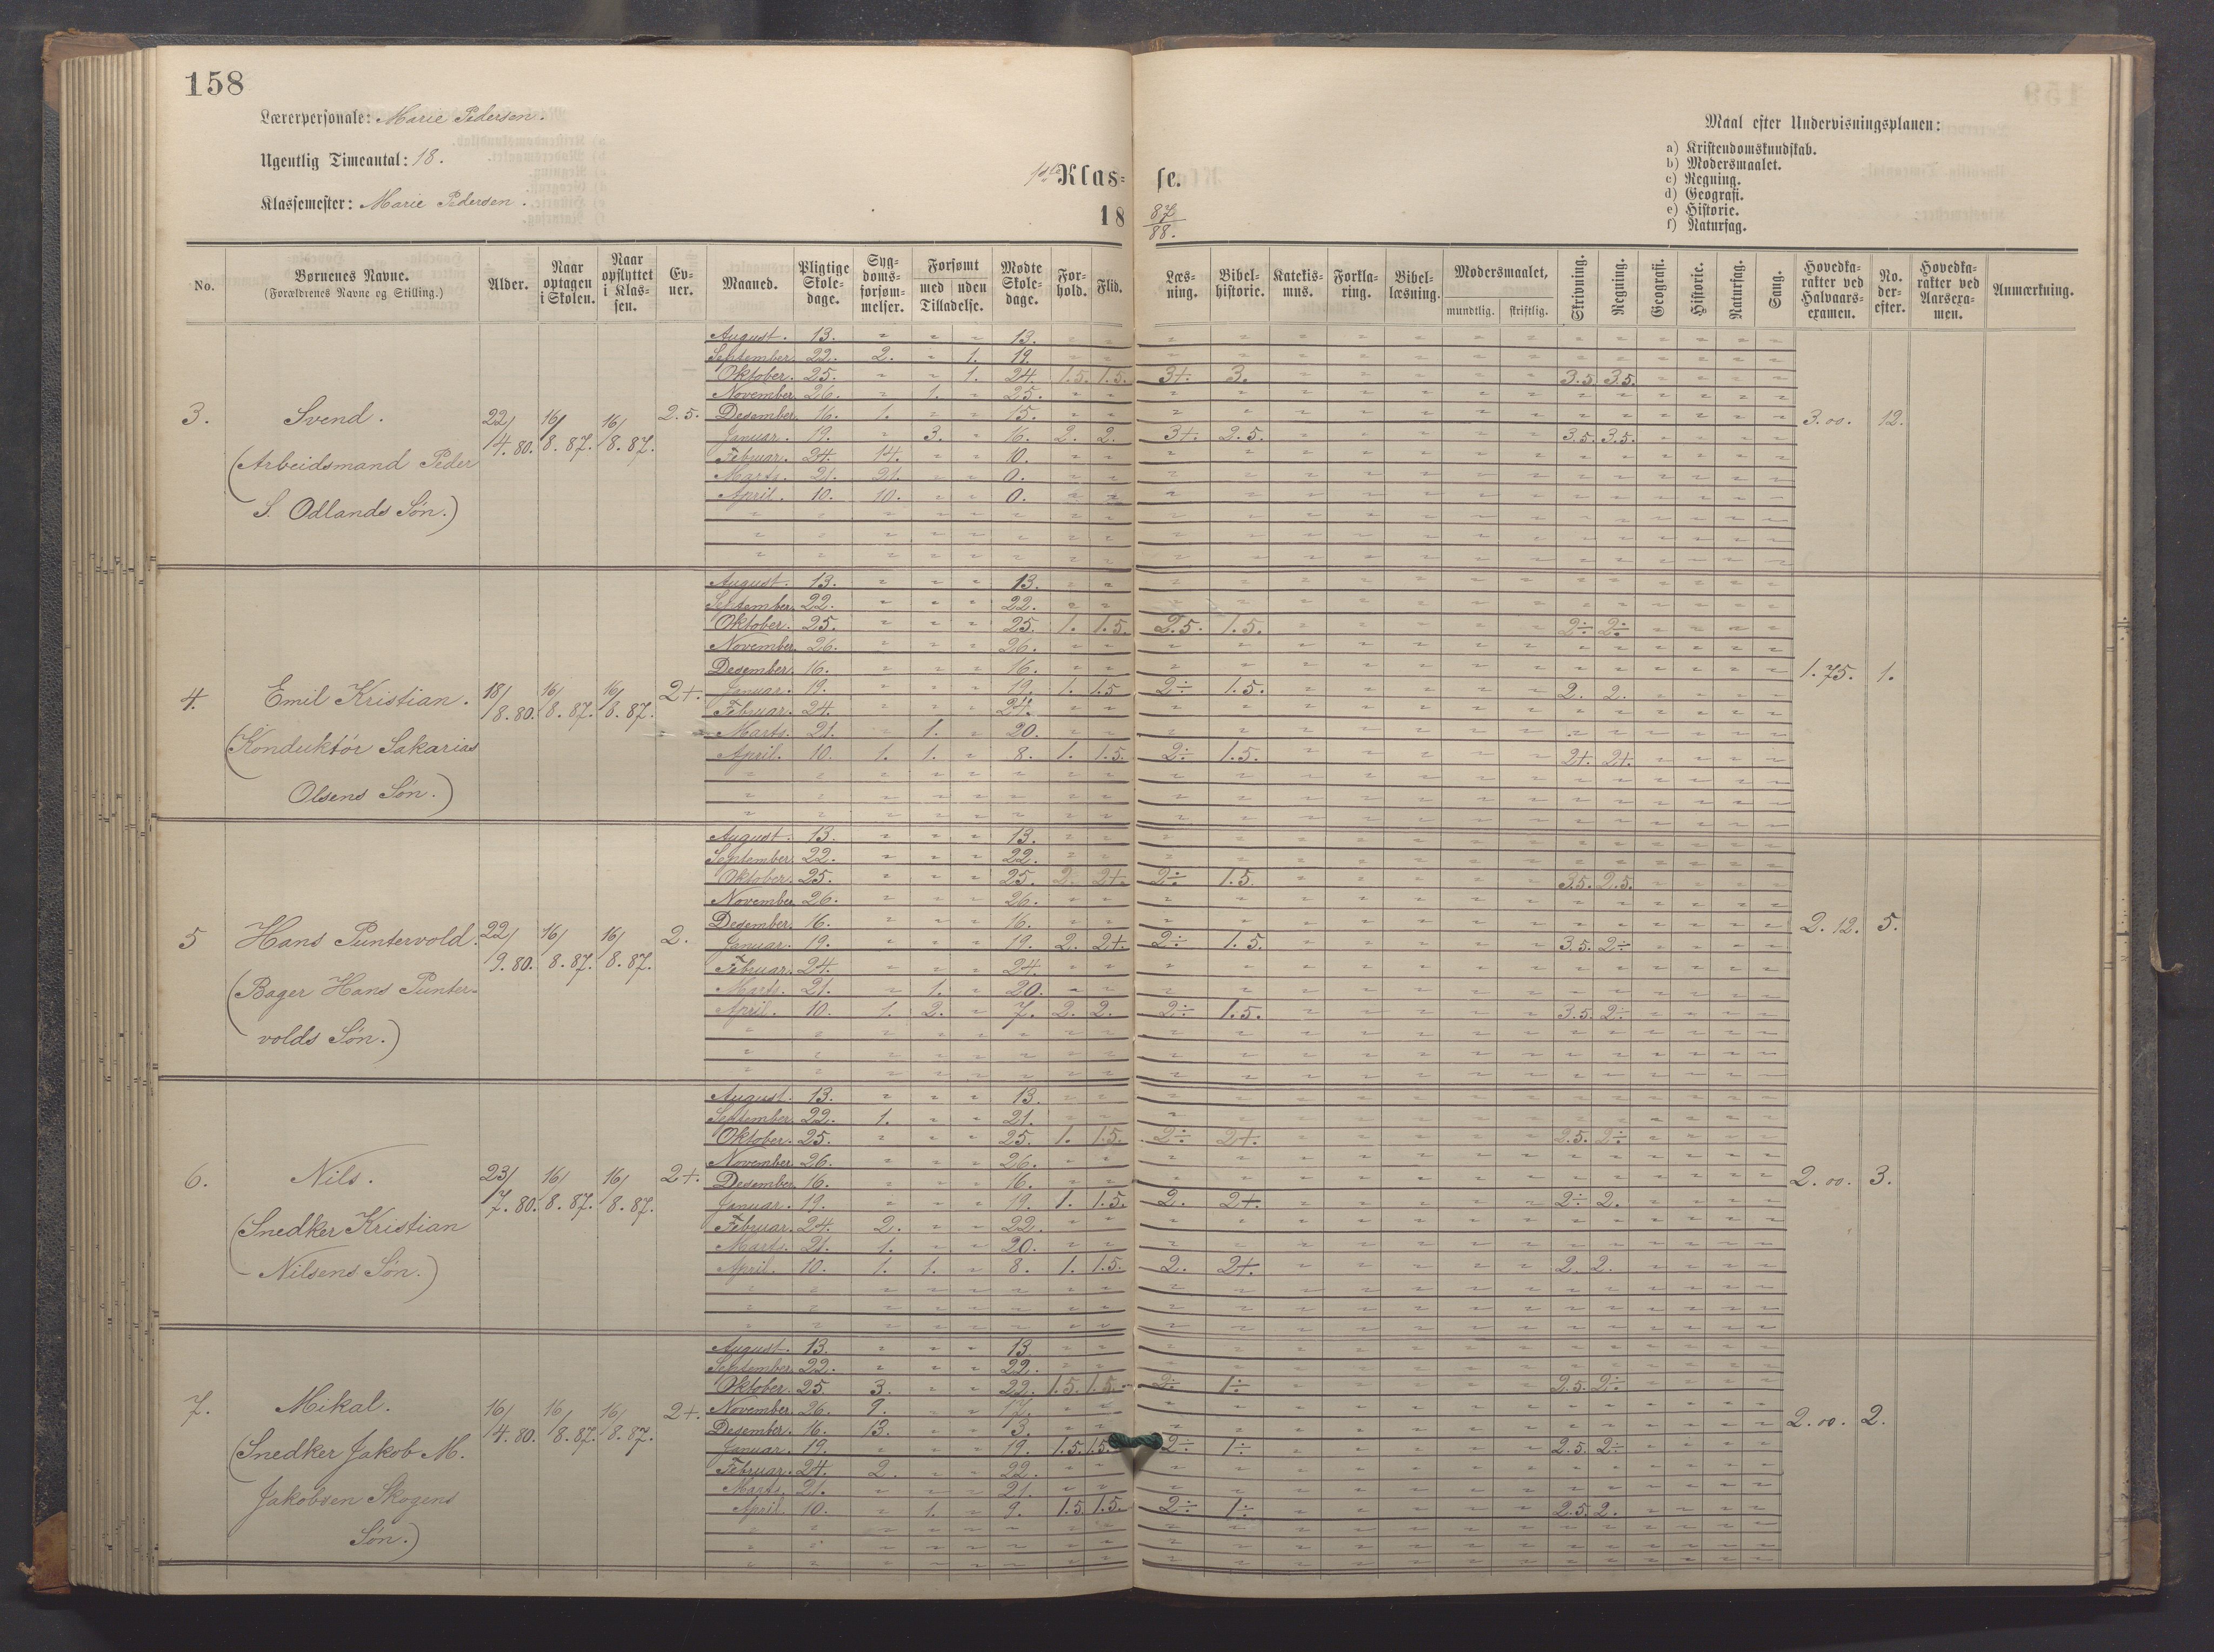 158
Lærerpersonale: Marie Pedersen.
Ugentlig Timeantal: 18.
Klassemester: Marie Pedersen.
1ste Klas= se.
18 87/88.
Maal efter Undervisningsplanen:
a) Kristendomskundskab.
b) Modersmaalet.
c) Regning.
d) Geografi.
e) Historie.
f) Naturfag.
No. Børnenes Navne. (Forældrenes Navne og Stilling.) Alder. Naar optagen i Skolen. Naar opflyttet i Klassen. Evner. Maaned. Pligtige Skoledage. Sygdomsforsømmelser. Forsømt med uden Tilladelse. Mødte Skoledage. Forhold. Flid. Læsning. Bibelhistorie. Katekismus. Forklaring. Bibellæsning. Modersmaalet, mundtlig. skriftlig. Skrivning. Regning. Geografi. Historie. Naturfag. Sang. Hovedkarakter ved Halvaarsexamen. No. derefter. Hovedkarakter ved Aarsexamen. Anmærkning.
3. Svend. 22/4.80. 16/8.87. 16/8.87. 2.5. 3.00. 12.
(Arbeidsmand Peder
S. Odlands Søn.)
August. 13. " " " 13.
September. 22. 2. " 1. 19.
Oktober. 25. " " 1. 24. 1.5. 1.5. 3+. 3. 3.5. 3.5.
November. 26. " 1. " 25.
Desember. 16. 1. " " 15.
Januar. 19. " 3. " 16. 2. 2. 3+. 2.5. 3.5. 3.5.
Februar. 24. 14. " " 10.
Marts. 21. 21. " " 0.
April. 10. 10. " " 0.
4. Emil Kristian. 18/8.80. 16/8.87. 16/8.87. 2+. 1.75. 1.
(Konduktör Sakarias
Olsens Søn.)
August. 13. " " " 13.
September. 22. " " " 22.
Oktober. 25. " " " 25. 1. 1.5. 2.5. 1.5. 2÷ 2÷
November. 26. " " " 26.
Desember. 16. " " " 16.
Januar. 19. " " " 19. 1. 1.5 2÷ 1.5. 2. 2.
Februar. 24. " " " 24.
Marts. 21. " 1. " 20.
April. 10. 1. 1. " 8. 1. 1.5. 2÷ 1.5. 2+. 2+.
5 Hans Puntervold. 22/9.80. 16/8.87. 16/8.87. 2. 2.12. 5.
(Bager Hans Punter-
volds Søn.)
August. 13. " " " 13.
September. 22. " " " 22.
Oktober. 25. " " " 25. 2. 2+. 2÷ 1.5 3.5. 2.5.
November. 26. " " " 26.
Desember. 16. " " " 16.
Januar. 19. " " " 19. 2. 2+. 2÷ 1.5. 3.5. 2÷
Februar. 24. " " " 24.
Marts. 21. " 1. " 20.
April. 10. 1. 2. " 7. 2. 2. 2÷ 1.5. 3.5. 2÷
6. Nils. 23/7.80. 16/8.87. 16/8.87. 2+. 2.00. 3.
(Snedker Kristian
Nilsens Søn.)
August. 13. " " " 13.
September. 22. 1. " " 21.
Oktober. 25. " " " 25. 1. 1.5. 2÷ 2+. 2.5. 2÷
November. 26. " " " 26.
Desember. 16. " " " 16.
Januar. 19. " " " 19. 1. 1.5. 2. 2+. 2÷ 2.
Februar. 24. 2. " " 22.
Marts. 21. 1. " " 20.
April. 10. 1. 1. " 8. 1. 1.5. 2. 2+. 2. 2.
7. Mikal. 16/4.80. 16/8.87. 16/8.87. 2+. 2.00. 2.
(Snedker Jakob M.
Jakobsen Skogens
Søn.)
August. 13. " " " 13
September. 22. " " " 22.
Oktober. 25. 3. " " 22. 1.5. 1.5. 2÷ 1÷ 2.5. 2÷
November. 26. 9. " " 17.
Desember. 16. 13. " " 3.
Januar. 19. " " " 19. 1.5. 1.5. 2÷ 1÷ 2.5. 2÷
Februar. 24. 2. " " 22.
Marts. 21. " " " 21.
April. 10. " 1. " 9. 1.5. 1.5. 2÷ 1÷ 2.5. 2.